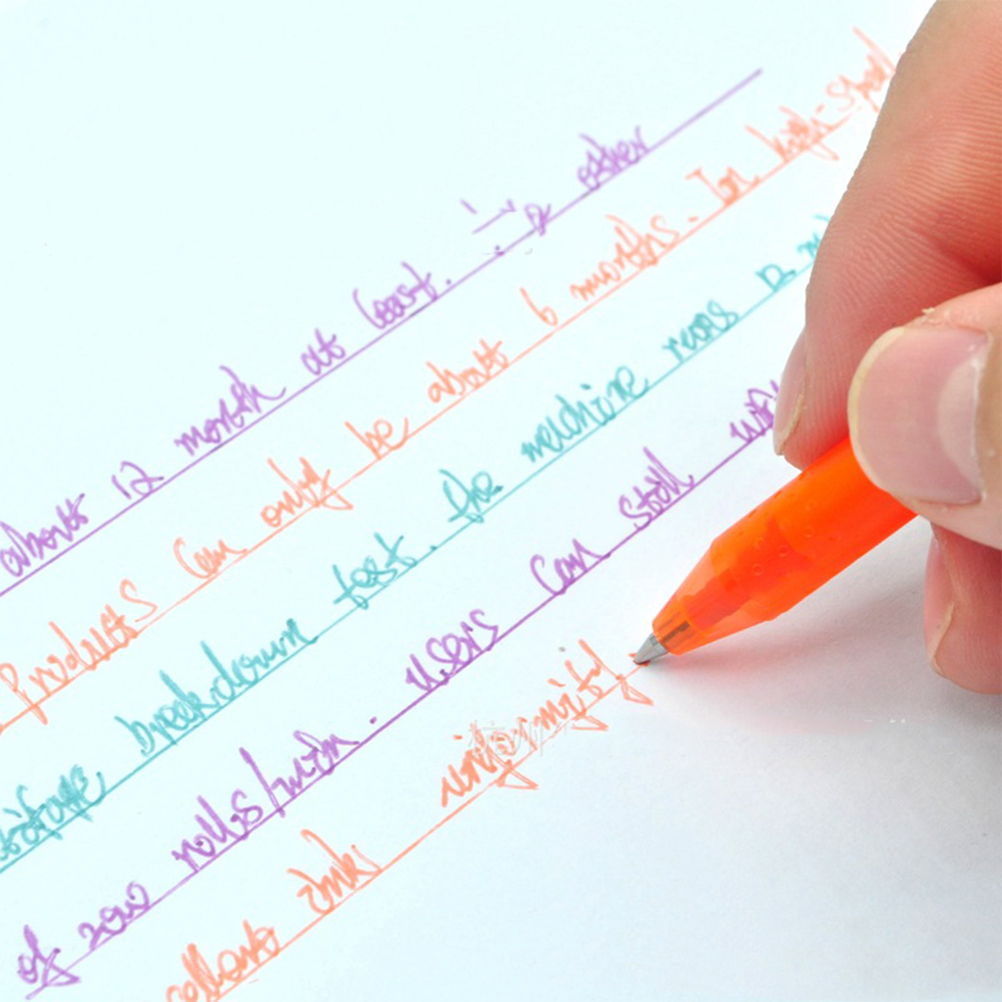 about 12 month at least. in other
Products can only be about 6 months. In high-speed
breakdown test. the machine rears
of 200 rolls/min. users can still with
inks uniformity